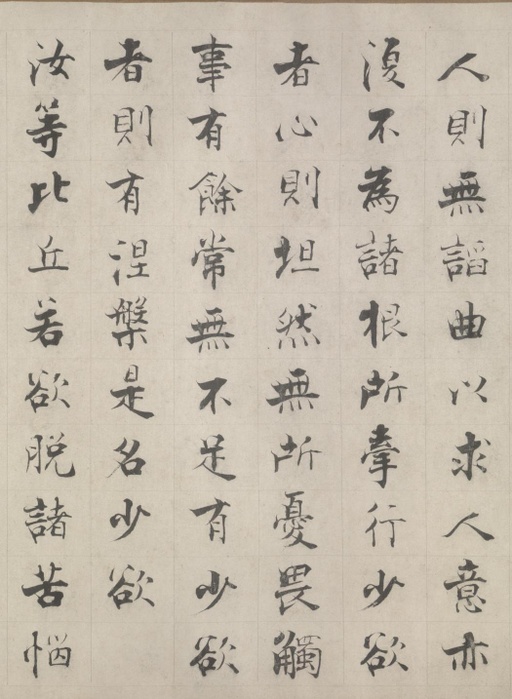 人則無諂曲以求人意亦
復不為諸根所牽行少欲
者心則坦然無所憂畏觸
事有餘常無不足有少欲
者則有涅槃是名少欲
汝等比丘若欲脫諸苦惱